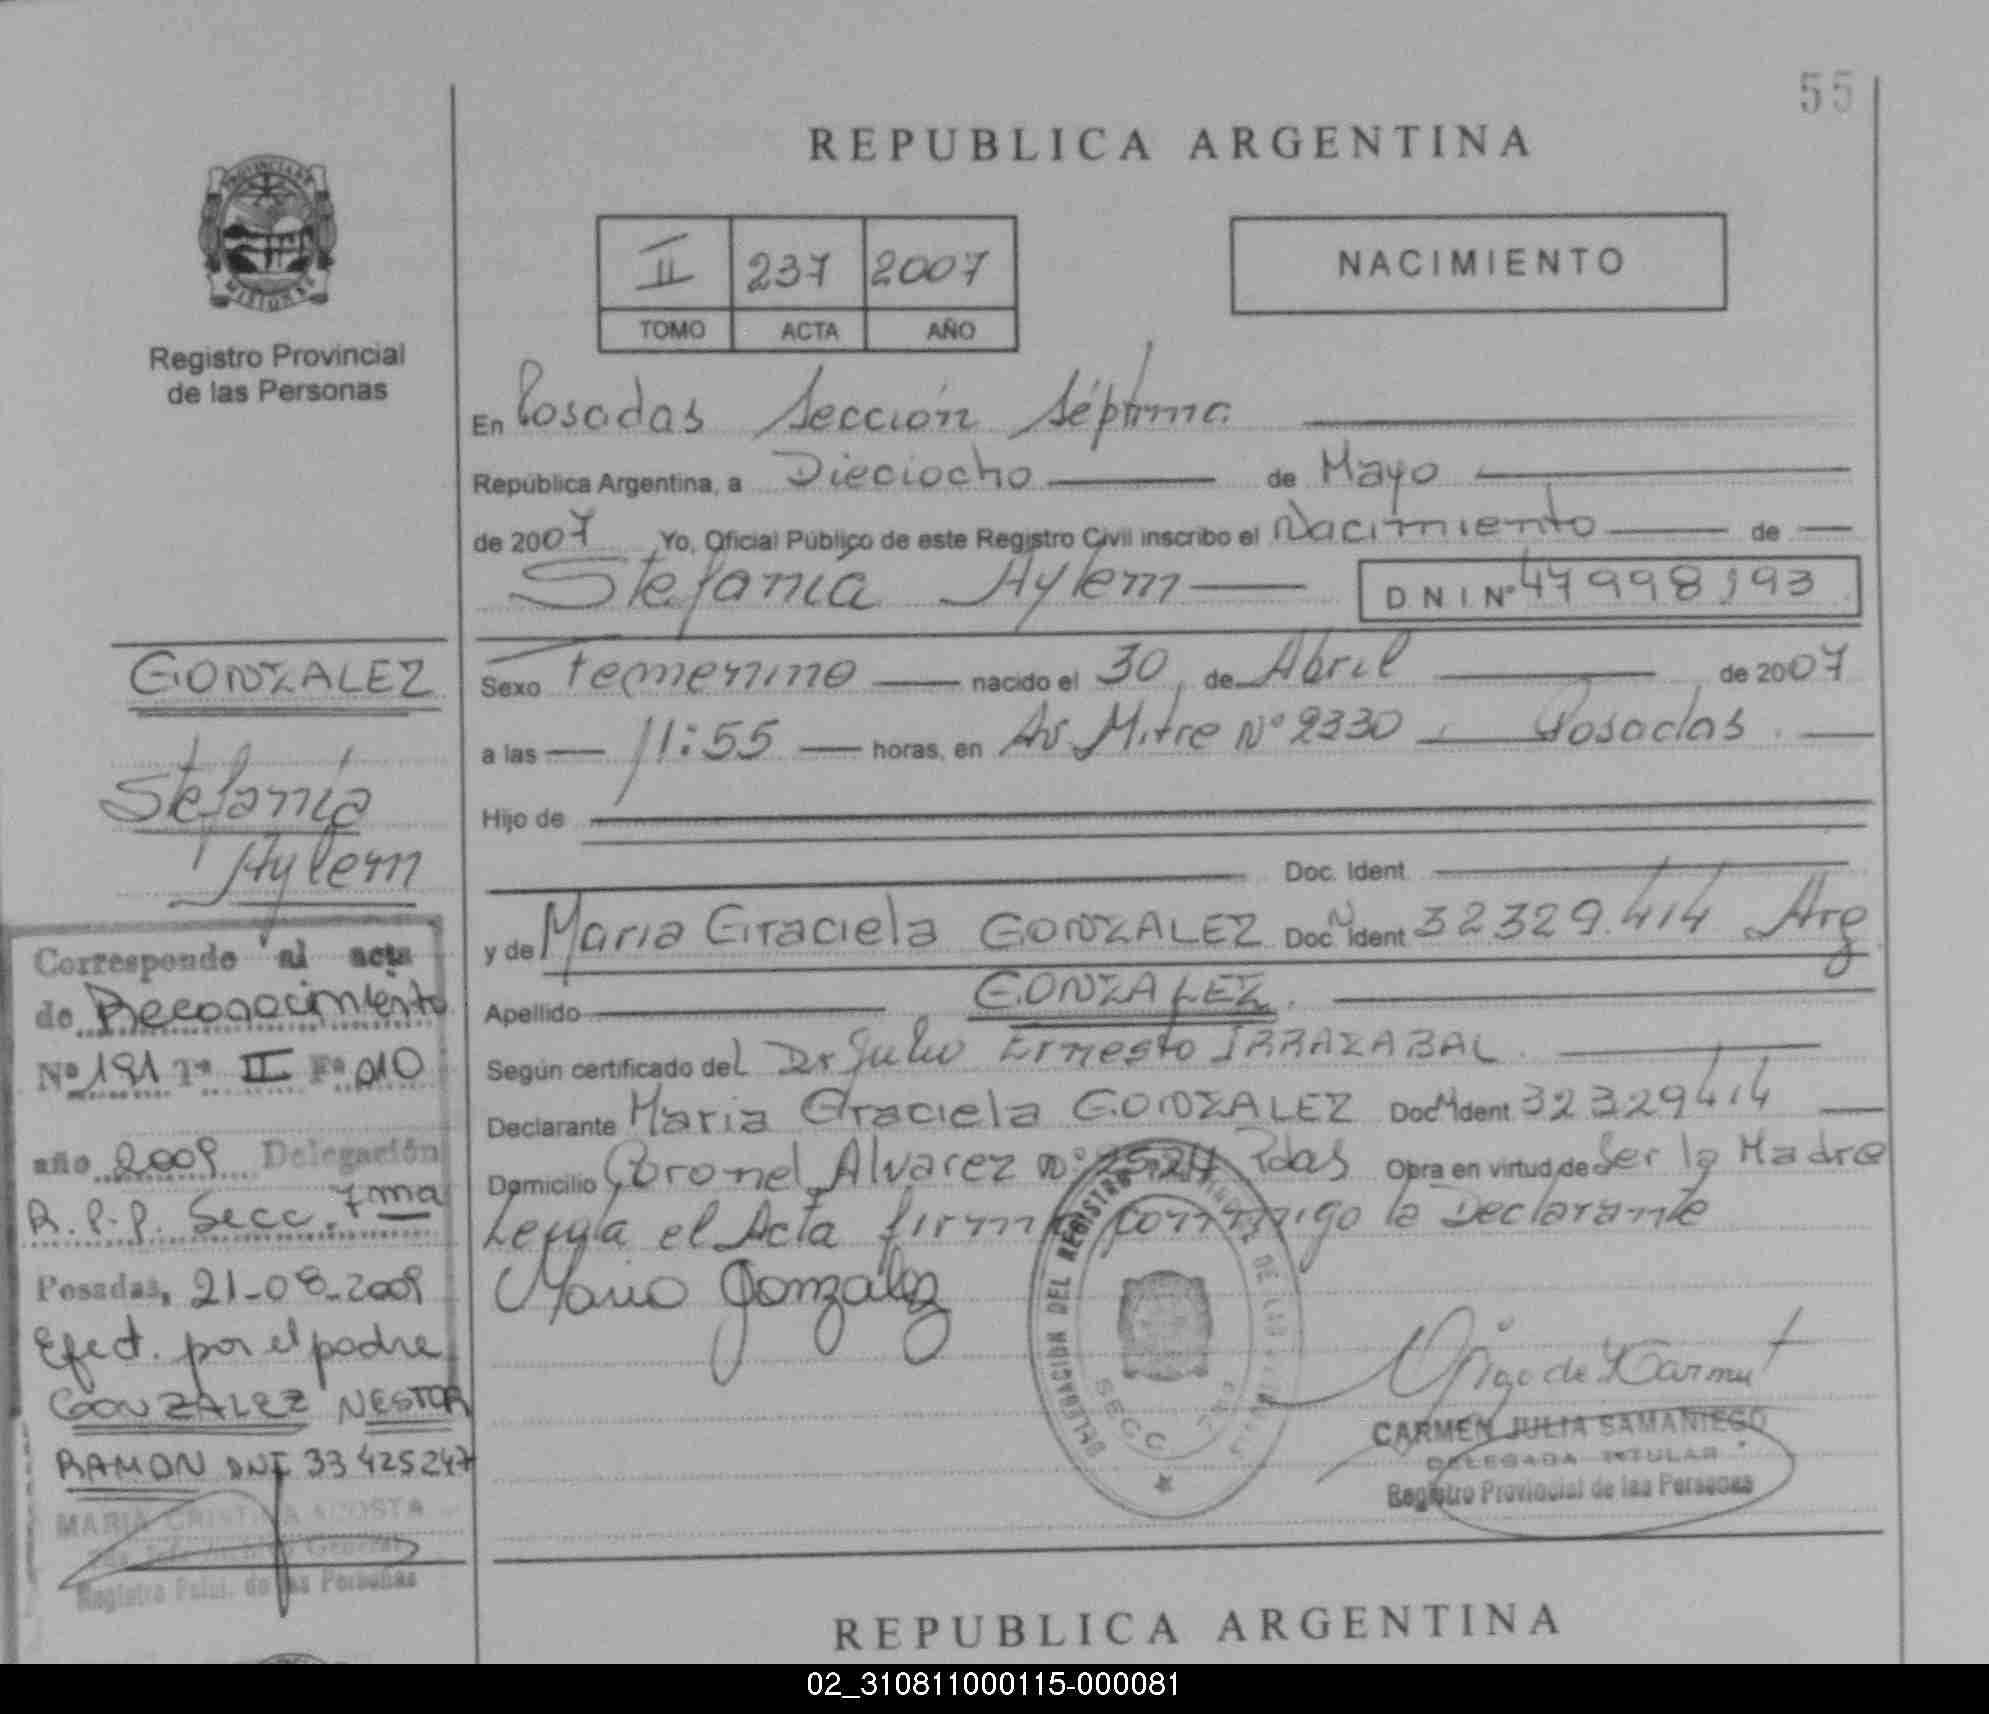 55
REPUBLICA ARGENTINA
PROVINCIA DE MISIONES
Registro Provincial
de las Personas
II 237 2007
TOMO ACTA AÑO
NACIMIENTO
En Posadas Sección Séptima
República Argentina, a Dieciocho de Mayo
de 2007 Yo, Oficial Público de este Registro Civil inscribo el Nacimiento de
Stefania Aylem DNI Nº 47998193
Sexo Femenino nacido el 30 de Abril de 2007
a las 11:55 horas, en Av Mitre Nº 2330 Posadas
Hijo de
Doc. Ident.
y de Maria Graciela GONZALEZ Doc N Ident 32329.414 Arg
Apellido GONZALEZ.
Según certificado del Dr Julio Ernesto IRRAZABAL
Declarante Maria Graciela GONZALEZ Doc N Ident 32329414
Domicilio Coronel Alvarez Nº Pdas Obra en virtud de Ser la Madre
el Acta firma conmigo la Declarante
Maria Gonzalez
DELEGACION DEL REGISTRO DE LAS
SECC
CARMEN JULIA SAMANIEGO
DELEGADA TITULAR
Registro Provincial de las Personas
GONZALEZ
Stefania
Aylem
Corresponde al acta
de Reconocimiento
Nº 191 Tº II Fº 010
año 2009 Delegación
R.P.P. Secc. 7ma
Posadas, 21-08-2009
Efect. por el padre
GONZALEZ NESTOR
RAMON DNI 33425247
MARIA CRISTINA ACOSTA
General
Registro Pcial. de las Personas
REPUBLICA ARGENTINA
02_310811000115-000081